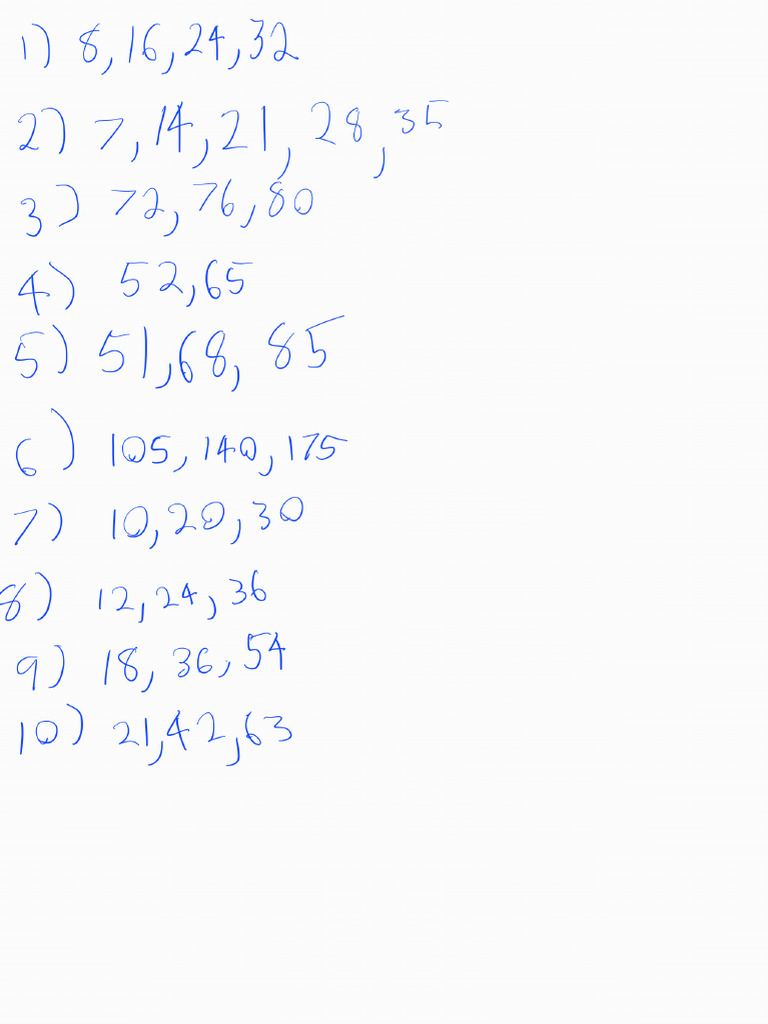 1) 8, 16, 24, 32
2) 7, 14, 21, 28, 35
3) 72, 76, 80
4) 52, 65
5) 51, 68, 85
6) 105, 140, 175
7) 10, 20, 30
8) 12, 24, 36
9) 18, 36, 54
10) 21, 42, 63